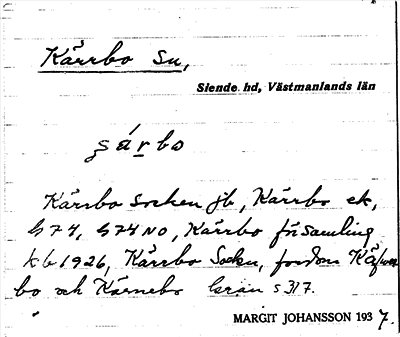 Kärrbo Sn,
Siende hd, Västmanlands län
şárbo
Kärrbo Socken jb, Kärrbo ek,
G74, G74NO, Kärrbo församling
kb 1926, Kärrbo Socken, fordom
bo och Kärnebo Grau s 317.
MARGIT JOHANSSON 1937.